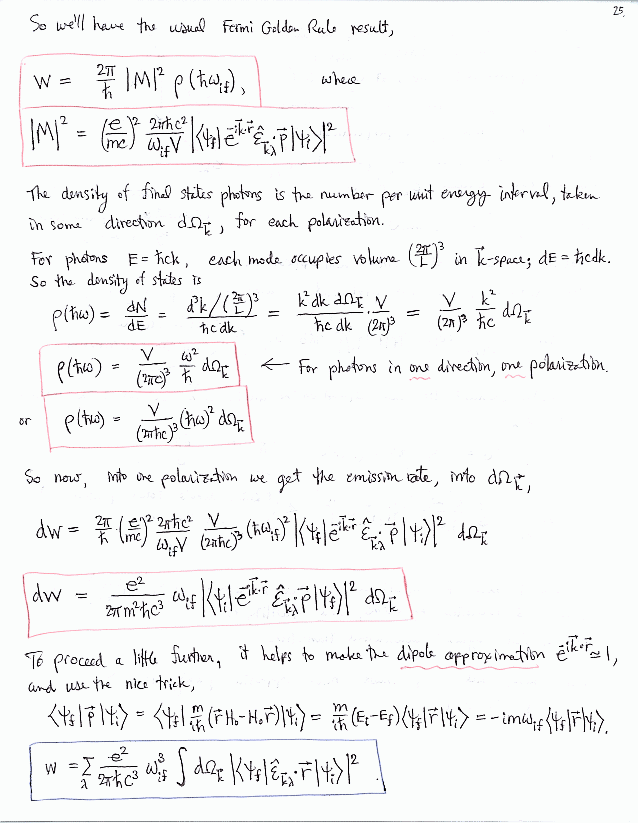 25.
So we'll have the usual Fermi Golden Rule result,
W = 2π/ħ |M|² ρ(ħω_if), where
|M|² = (e/mc)² 2πħc²/(ω_if V) |⟨ψ_f| e^{-i k⃗·r⃗} ε̂_{k⃗λ}·p⃗ |ψ_i⟩|²
The density of final states photons is the number per unit energy interval, taken
in some direction dΩ_k⃗, for each polarization.
For photons E = ħck, each mode occupies volume (2π/L)³ in k⃗-space; dE = ħcdk.
So the density of states is
ρ(ħω) = dN/dE = d³k/(2π/L)³ / (ħc dk) = (k² dk dΩ_k⃗)/(ħc dk) V/(2π)³ = V/(2π)³ k²/(ħc) dΩ_k⃗
ρ(ħω) = V/(2πc)³ ω²/ħ dΩ_k⃗ ← For photons in one direction, one polarization.
or ρ(ħω) = V/(2πħc)³ (ħω)² dΩ_k⃗
So now, into one polarization we get the emission rate, into dΩ_k⃗,
dw = 2π/ħ (e/mc)² 2πħc²/(ω_if V) V/(2πħc)³ (ħω_if)² |⟨ψ_f| e^{-i k⃗·r⃗} ε̂_{k⃗λ}·p⃗ |ψ_i⟩|² dΩ_k⃗
dw = e²/(2πm²ħc³) ω_if |⟨ψ_i| e^{-i k⃗·r⃗} ε̂_{k⃗λ}·p⃗ |ψ_f⟩|² dΩ_k⃗
To proceed a little further, it helps to make the dipole approximation e^{-i k⃗·r⃗} ≃ 1,
and use the nice trick,
⟨ψ_f|p⃗|ψ_i⟩ = ⟨ψ_f| m/(iħ) (r⃗ H₀ - H₀ r⃗)|ψ_i⟩ = m/(iħ) (E_i - E_f)⟨ψ_f|r⃗|ψ_i⟩ = -imω_if ⟨ψ_f|r⃗|ψ_i⟩.
w = Σ_λ e²/(2πħc³) ω_if³ ∫ dΩ_k⃗ |⟨ψ_f| ε̂_{k⃗λ}·r⃗ |ψ_i⟩|².